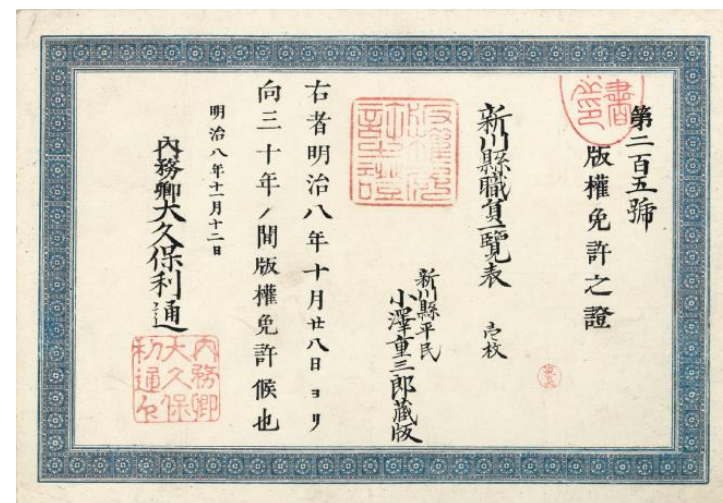 第二百五號
版權免許之證
新川縣職員一覽表 壱枚
新川縣平民
小澤重三郎藏版
版權免許之證
右者明治八年十月廿八日ヨリ
向三十年ノ間版權免許候也
明治八年十一月十二日
内務卿大久保利通
内務卿
大久保
利通印